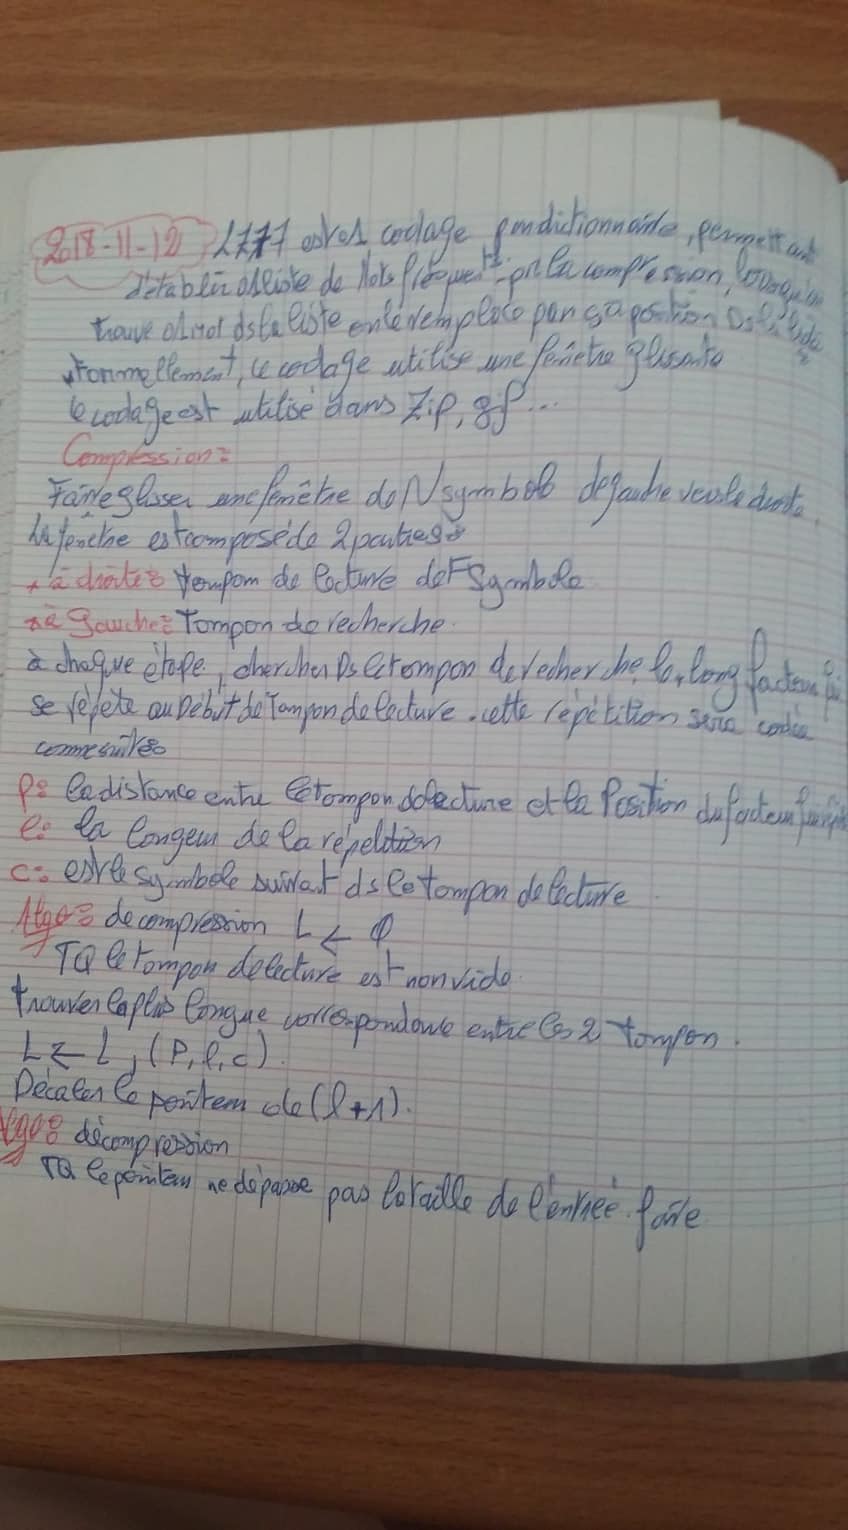 2018-11-12 LZ77 est codage dictionnaire, permettant
d'établir liste de Mots fréquent pr la compression, lorsqu'on
trouve mot ds la liste on le remplace par sa position ds la liste
Formellement, le codage utilise une fenêtre glissante
le codage est utilisé dans Zip, gif...
Compression:
Faire glisser une fenêtre de N symbole de gauche vers la droite,
la fenêtre est composé de 2 parties:
* à droite: tompom de lecture de F Symbole
* à gauche: Tompon de recherche.
à chaque étape, chercher Ds le tompon de recherche le + long facteur qui
se répète au Début de Tampon de lecture. cette répétition sera codée
comme suite:
P: la distance entre le tompon de lecture et la Position du facteur
l: la longeur de la répétition
c: est le symbole suivant ds le tompon de lecture
Algo: decompression L ← ϕ
TQ le tompon de lecture est non vide.
trouver la plus longue correspondante entre les 2 tompon.
L ← L, (P, l, c).
Décaler le pointeur de (l+1).
Algo: décompression
TQ le pointeur ne dépasse pas la taille de l'entrée. faire